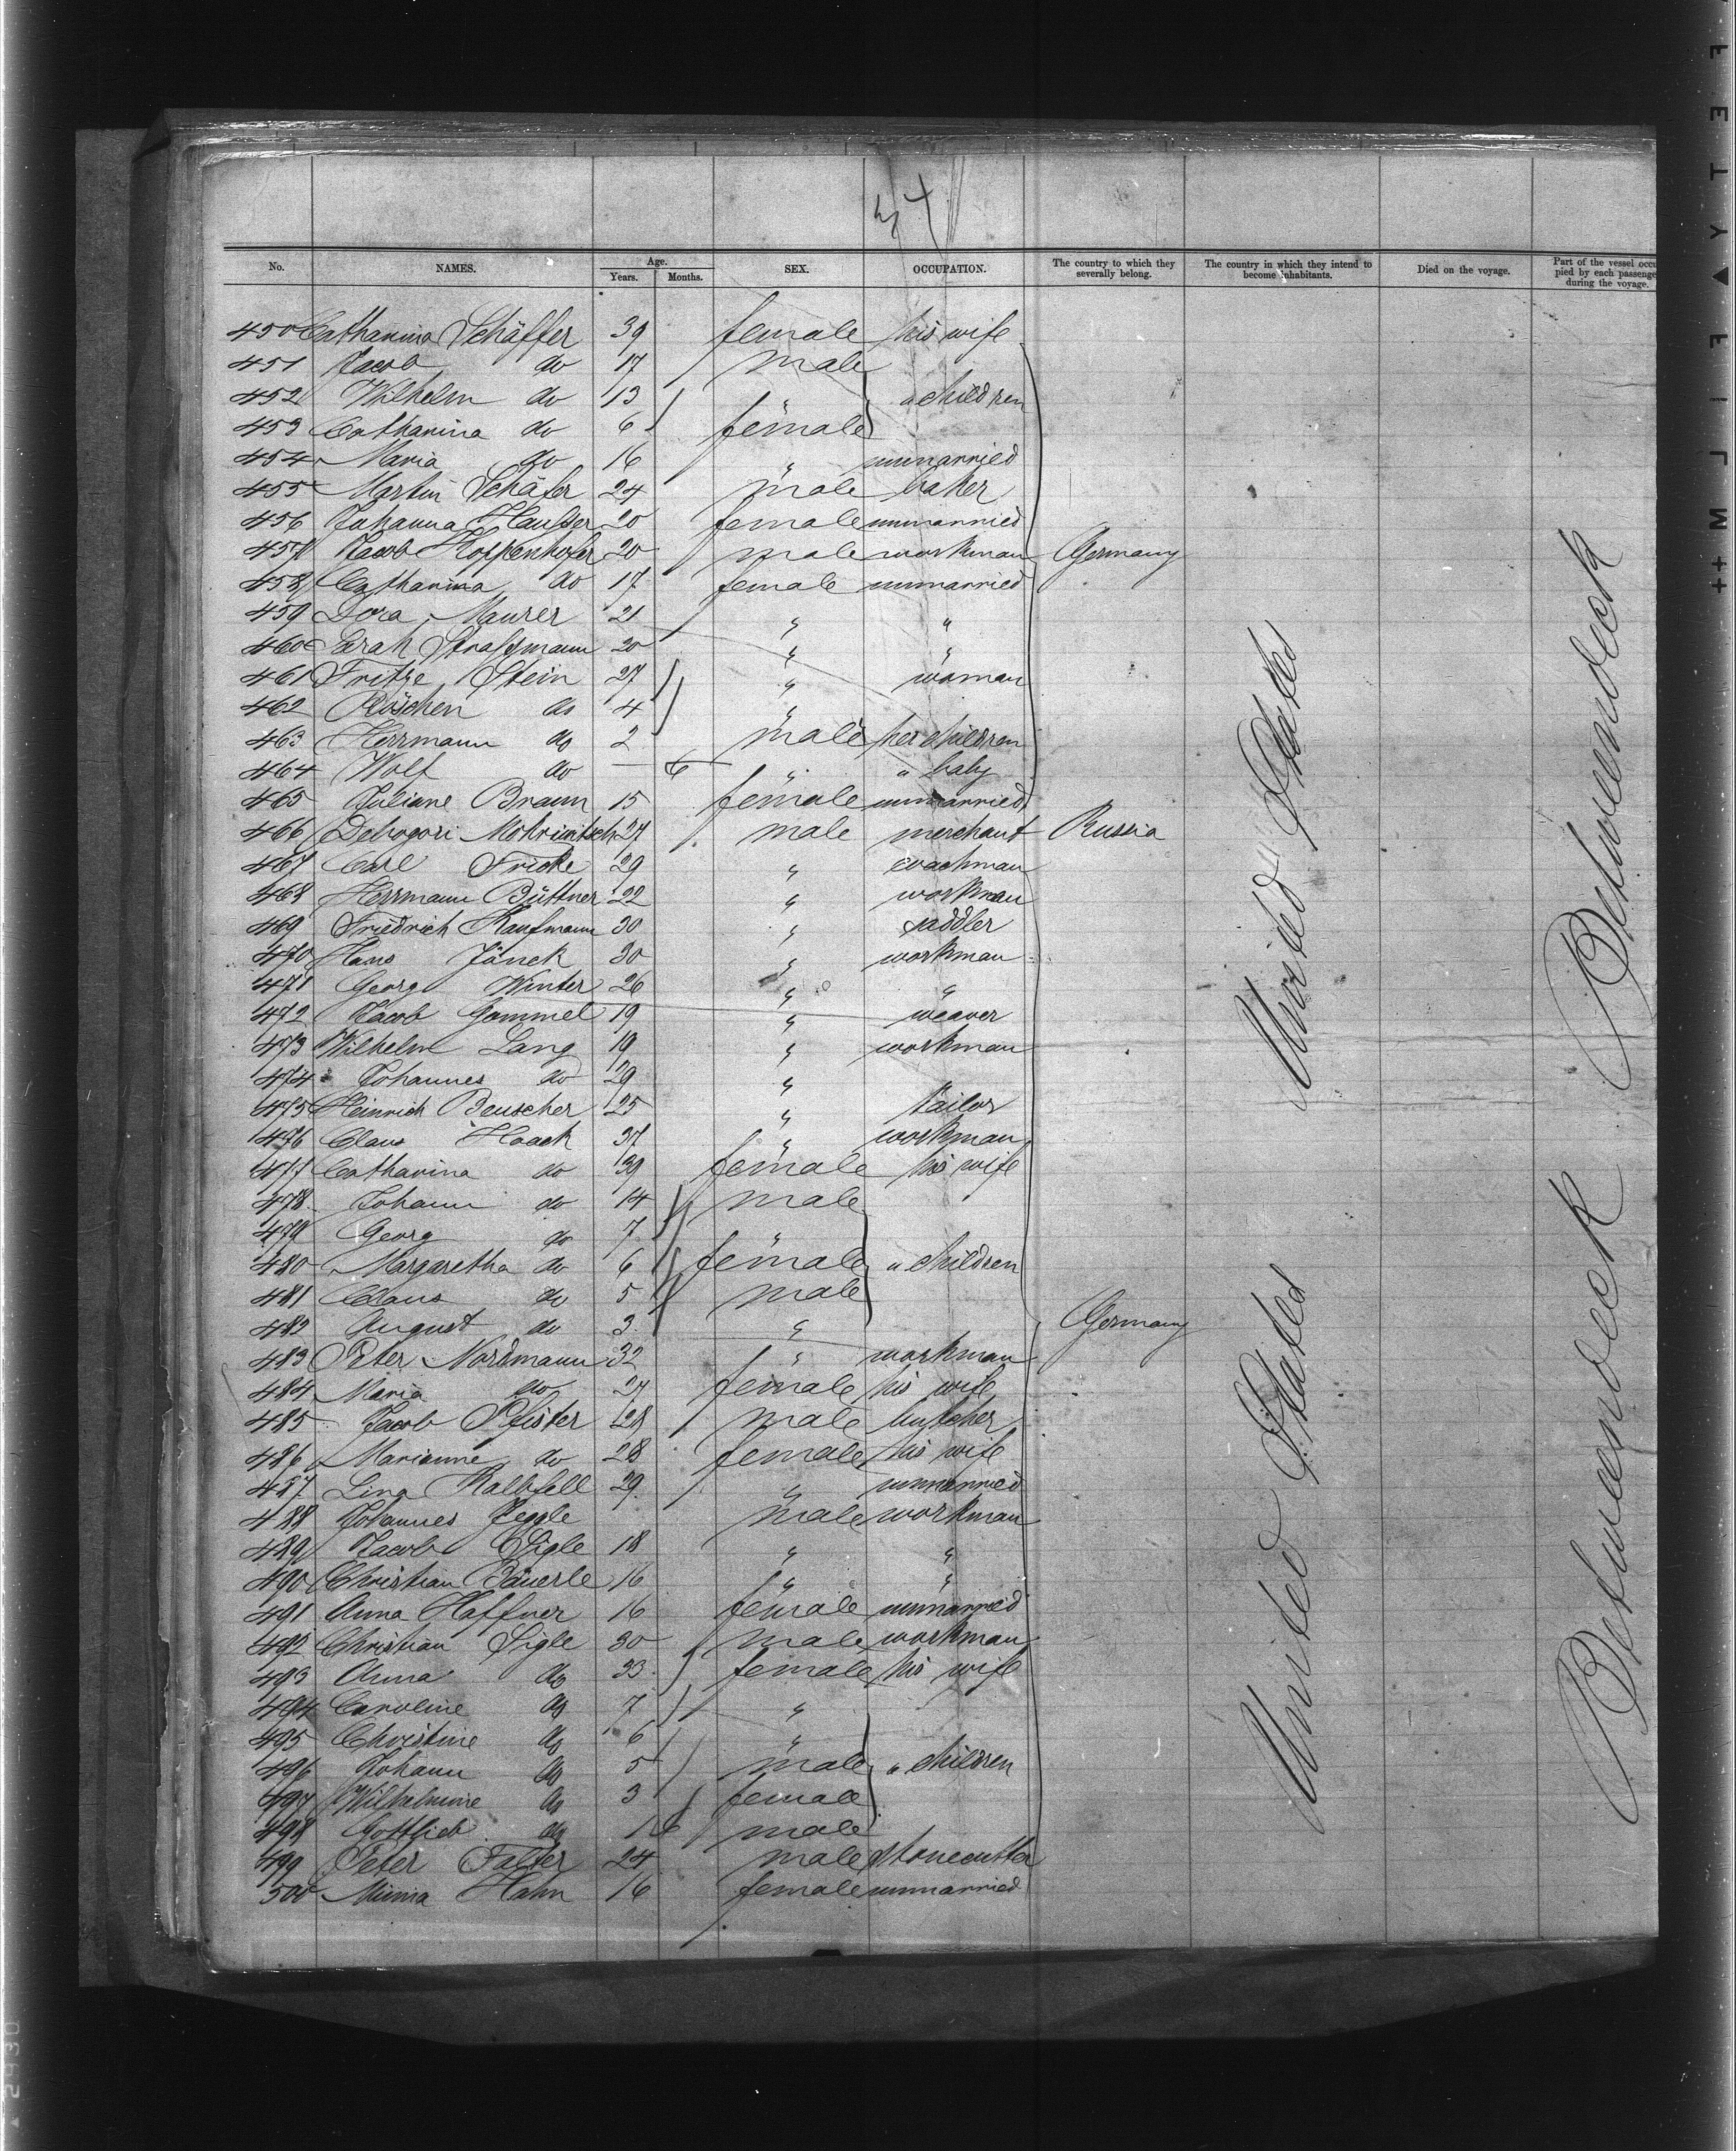 34
No. NAMES. Age. Years. Months. SEX. OCCUPATION. The country to which they severally belong. The country in which they intend to become inhabitants. Died on the voyage. Part of the vessel occu pied by each passenge during the voyage.
450 Catharina Schäffer 39 female his wife
451 Jacob do 17 male
452 Wilhelm do 13 " " children
453 Catharina do 6 female
454 Maria do 16 " unmarried
455 Martin Schäfer 24 male baker
456 Johanna Hausser 20 female unmarried
457 Jacob Hoppenhofer 20 male workman Germany
458 Catharina do 17 female unmarried
459 Dora Maurer 21 " "
460 Sarah Strassmann 20 " "
461 Fritze Stein 27 " woman
462 Röschen do 4 "
463 Herrmann do 2 male her children
464 Wolf do — 6 " " baby
465 Juliane Braun 15 female unmarried
466 Debogori Mokriwitsch 27 male merchant Russia
467 Carl Fricke 29 " coachman
468 Herrmann Büttner 22 " workman
469 Friedrich Kaufmann 30 " saddler
470 Hans Jänck 30 " workman
471 Georg Winter 26 " "
472 Jacob Gommel 19 " weaver
473 Wilhelm Lang 19 " workman
474 Johannes do 29 "
475 Heinrich Beuscher 25 " tailor
476 Claus Haack 37 " workman
477 Catharina do 39 female his wife
478 Johann do 14 male
479 Georg do 7 "
480 Margaretha do 6 female " children
481 Claus do 5 male
482 August do 3 " Germany
483 Peter Nordmann 32 " workman
484 Maria do 27 female his wife
485 Jacob Pfister 28 male butcher
486 Marianne do 28 female his wife
487 Lina Kalbfell 29 " unmarried
488 Johannes Jeggle male workman
489 Jacob Sigle 18 " "
490 Christian Bäuerle 16 " "
491 Anna Haffner 16 female unmarried
492 Christian Sigle 30 male workman
493 Anna do 33 female his wife
494 Caroline do 7 "
495 Christine do 6 "
496 Johann do 5 male " children
497 Wilhelmine do 3 female
498 Gottlieb do 1 6 male
499 Peter Falter 24 male stonecutter
500 Minna Hahn 16 female unmarried
United States
United States
Betweendeck
Betweendeck